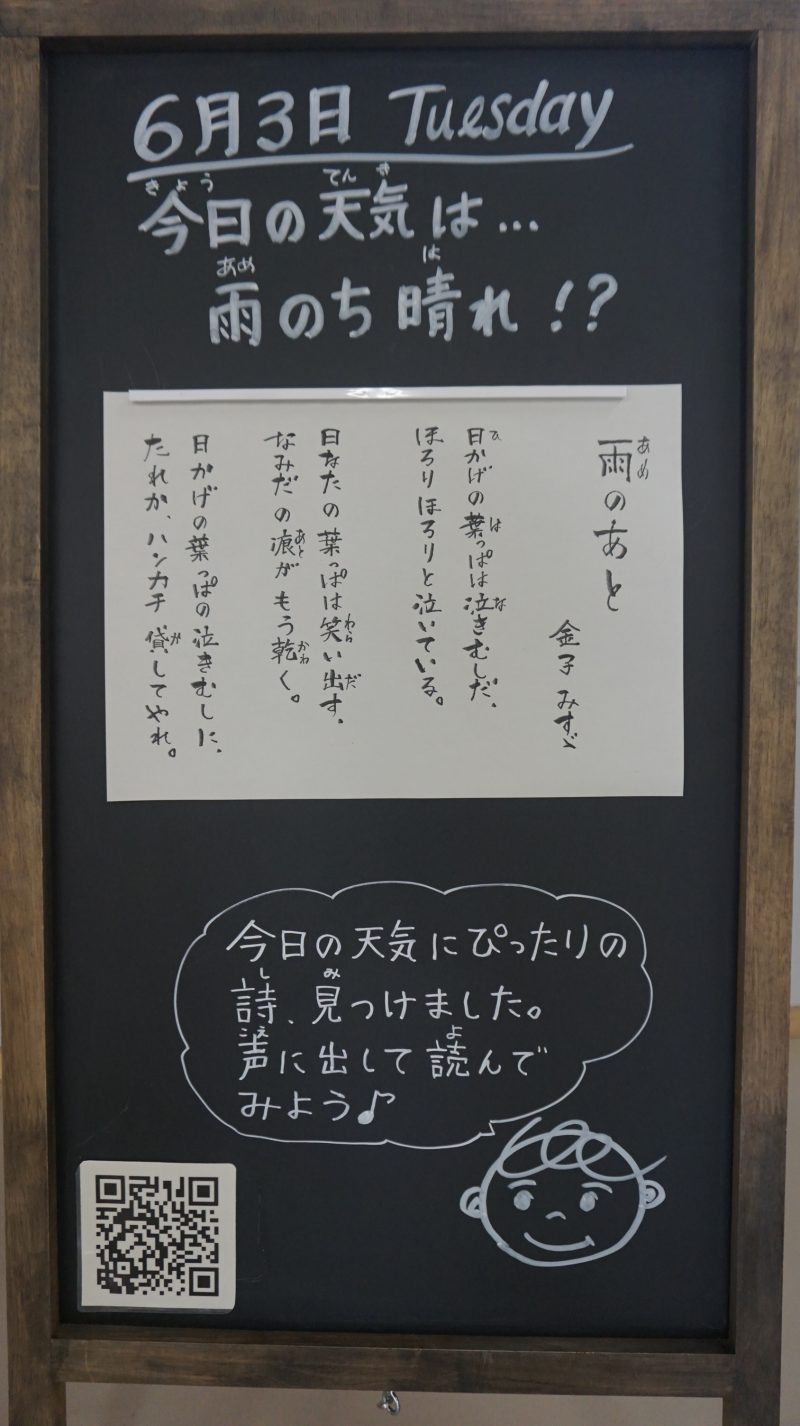 6月3日 Tuesday
きょう てんき
今日の天気は…
あめ は
雨のち晴れ!?
あめ
雨のあと
金子 みすゞ
ひ は な
日かげの葉っぱは泣きむしだ、
ほろりほろりと泣いている。
わら だ
日なたの葉っぱは笑い出す、
あと かわ
なみだの痕がもう乾く。
日かげの葉っぱの泣きむしに、
か
たれか、ハンカチ貸してやれ。
今日の天気にぴったりの
し み
詩、見つけました。
こえ よ
声に出して読んで
みよう♪